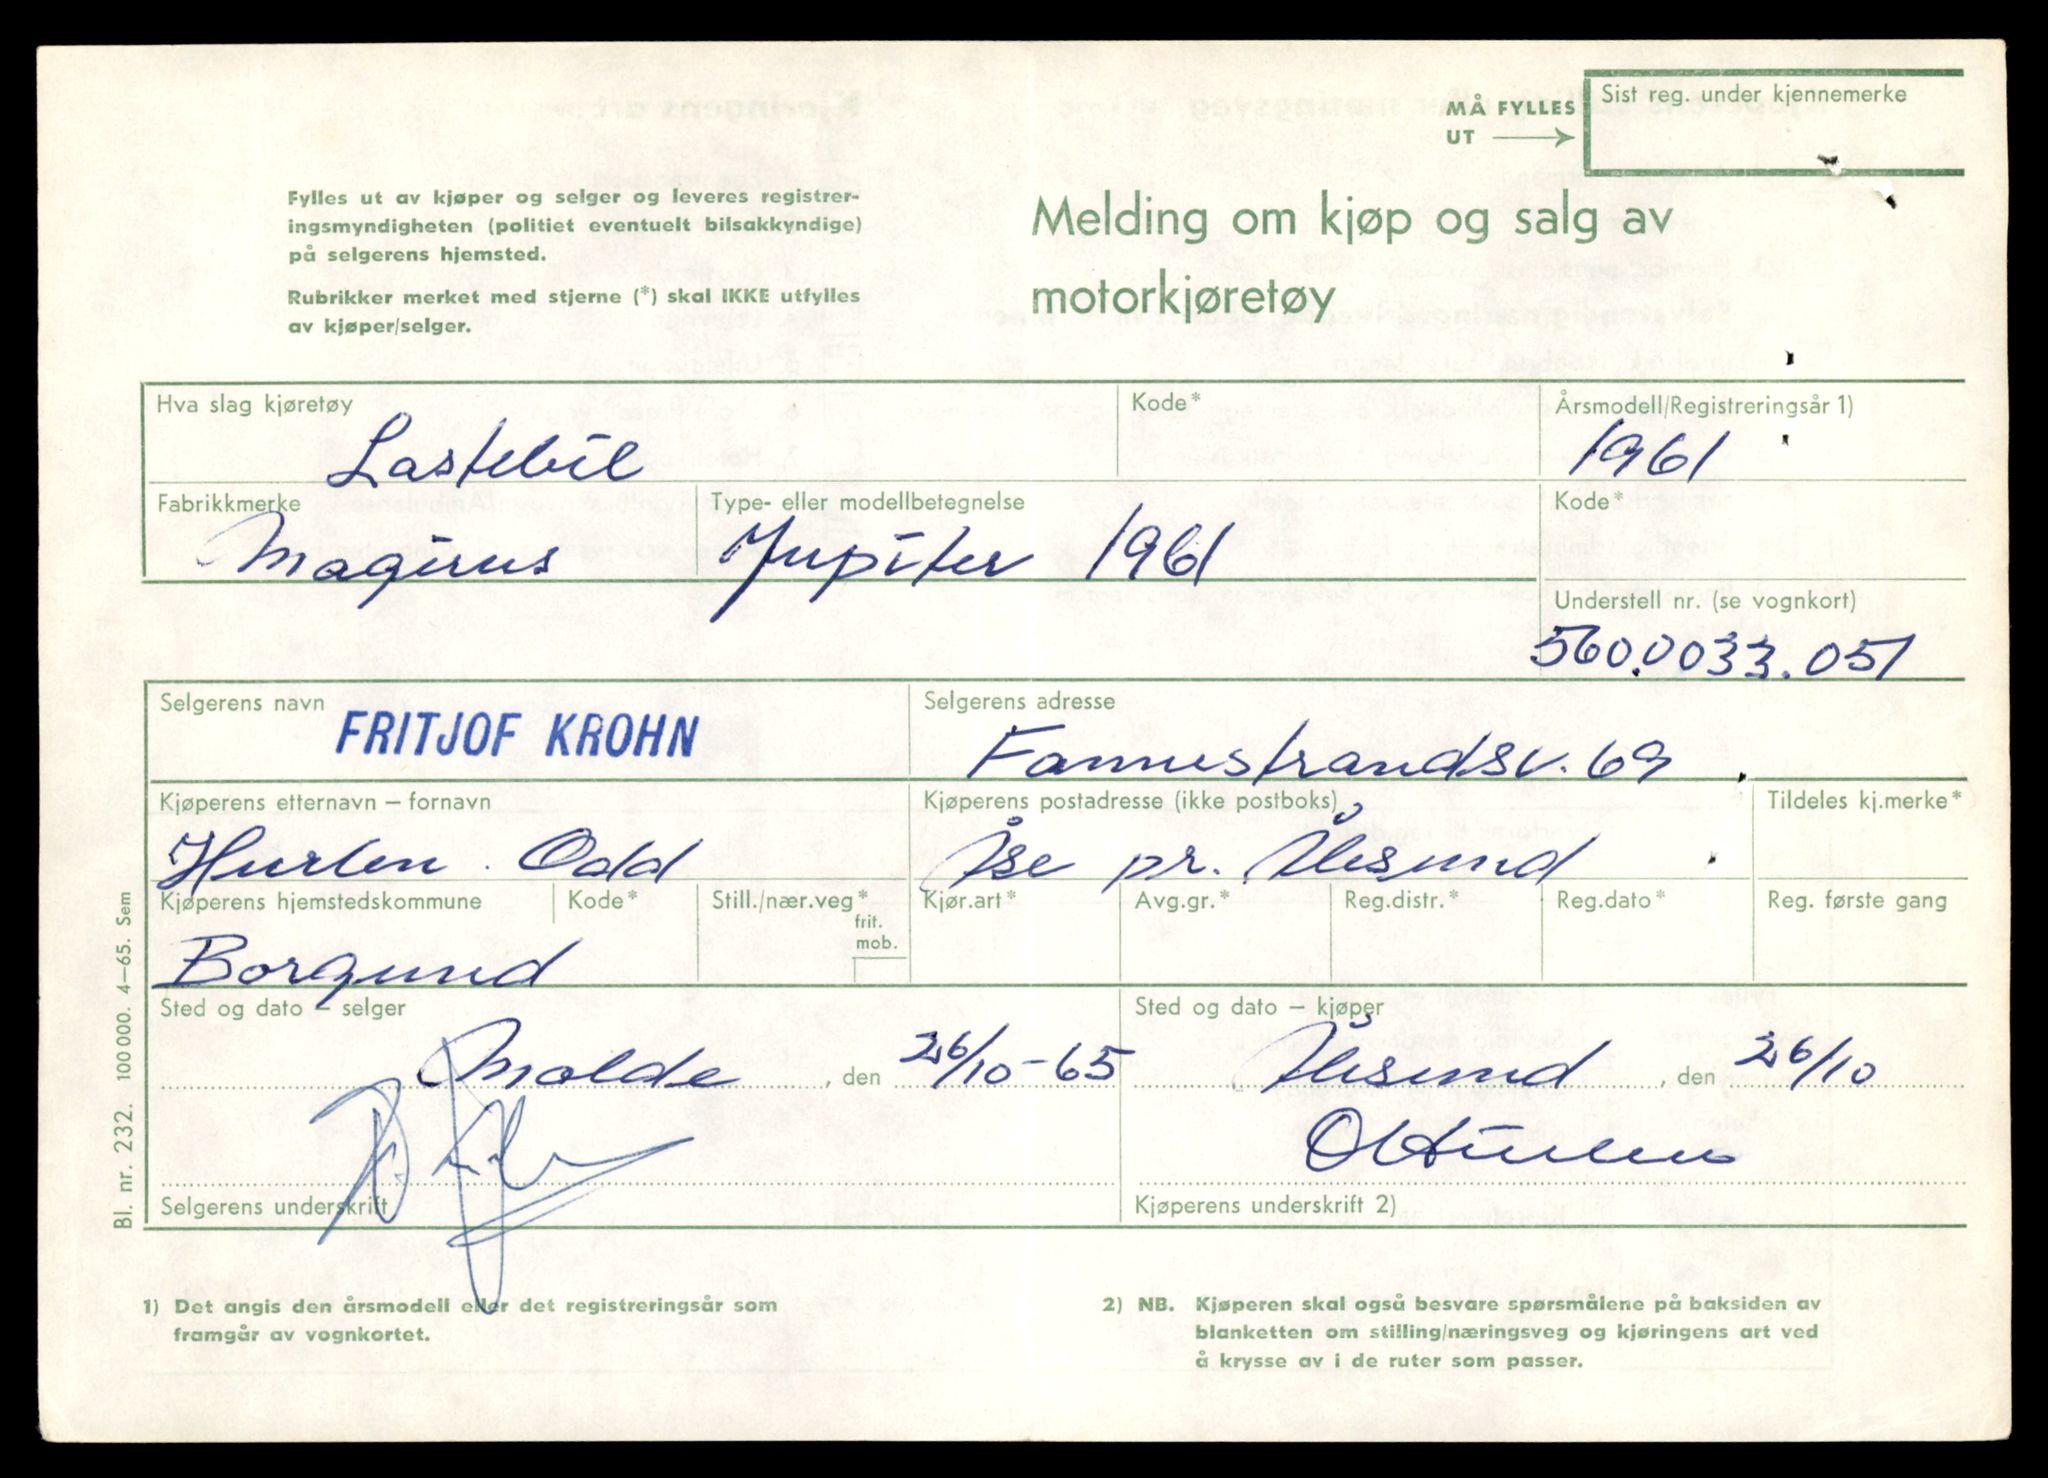 MÅ FYLLES
UT
Sist reg. under kjennemerke
Fylles ut av kjøper og selger og leveres registrer-
ingsmyndigheten (politiet eventuelt bilsakkyndige)
på selgerens hjemsted.
Rubrikker merket med stjerne (*) skal IKKE utfylles
av kjøper/selger.
Melding om kjøp og salg av
motorkjøretøy
Hva slag kjøretøy Kode* Årsmodell/Registreringsår 1)
Lastebil 1961
Fabrikkmerke Type- eller modellbetegnelse Kode*
Magirus Jupiter 1961
Understell nr. (se vognkort)
560.0033.051
Selgerens navn Selgerens adresse
FRITJOF KROHN Fannestrandsv. 69
Kjøperens etternavn – fornavn Kjøperens postadresse (ikke postboks) Tildeles kj.merke*
Hurlen. Odd Åse pr. Ålesund
Kjøperens hjemstedskommune Kode* Still./nær.veg* Kjør.art* Avg.gr.* Reg.distr.* Reg.dato* Reg. første gang
frit.
mob.
Borgund
Sted og dato – selger Sted og dato – kjøper
Molde, den 26/10-65 Ålesund, den 26/10
Selgerens underskrift Kjøperens underskrift 2)
Bl. nr. 232. 100 000. 4–65. Sem
1) Det angis den årsmodell eller det registreringsår som
framgår av vognkortet.
2) NB. Kjøperen skal også besvare spørsmålene på baksiden av
blanketten om stilling/næringsveg og kjøringens art ved
å krysse av i de ruter som passer.